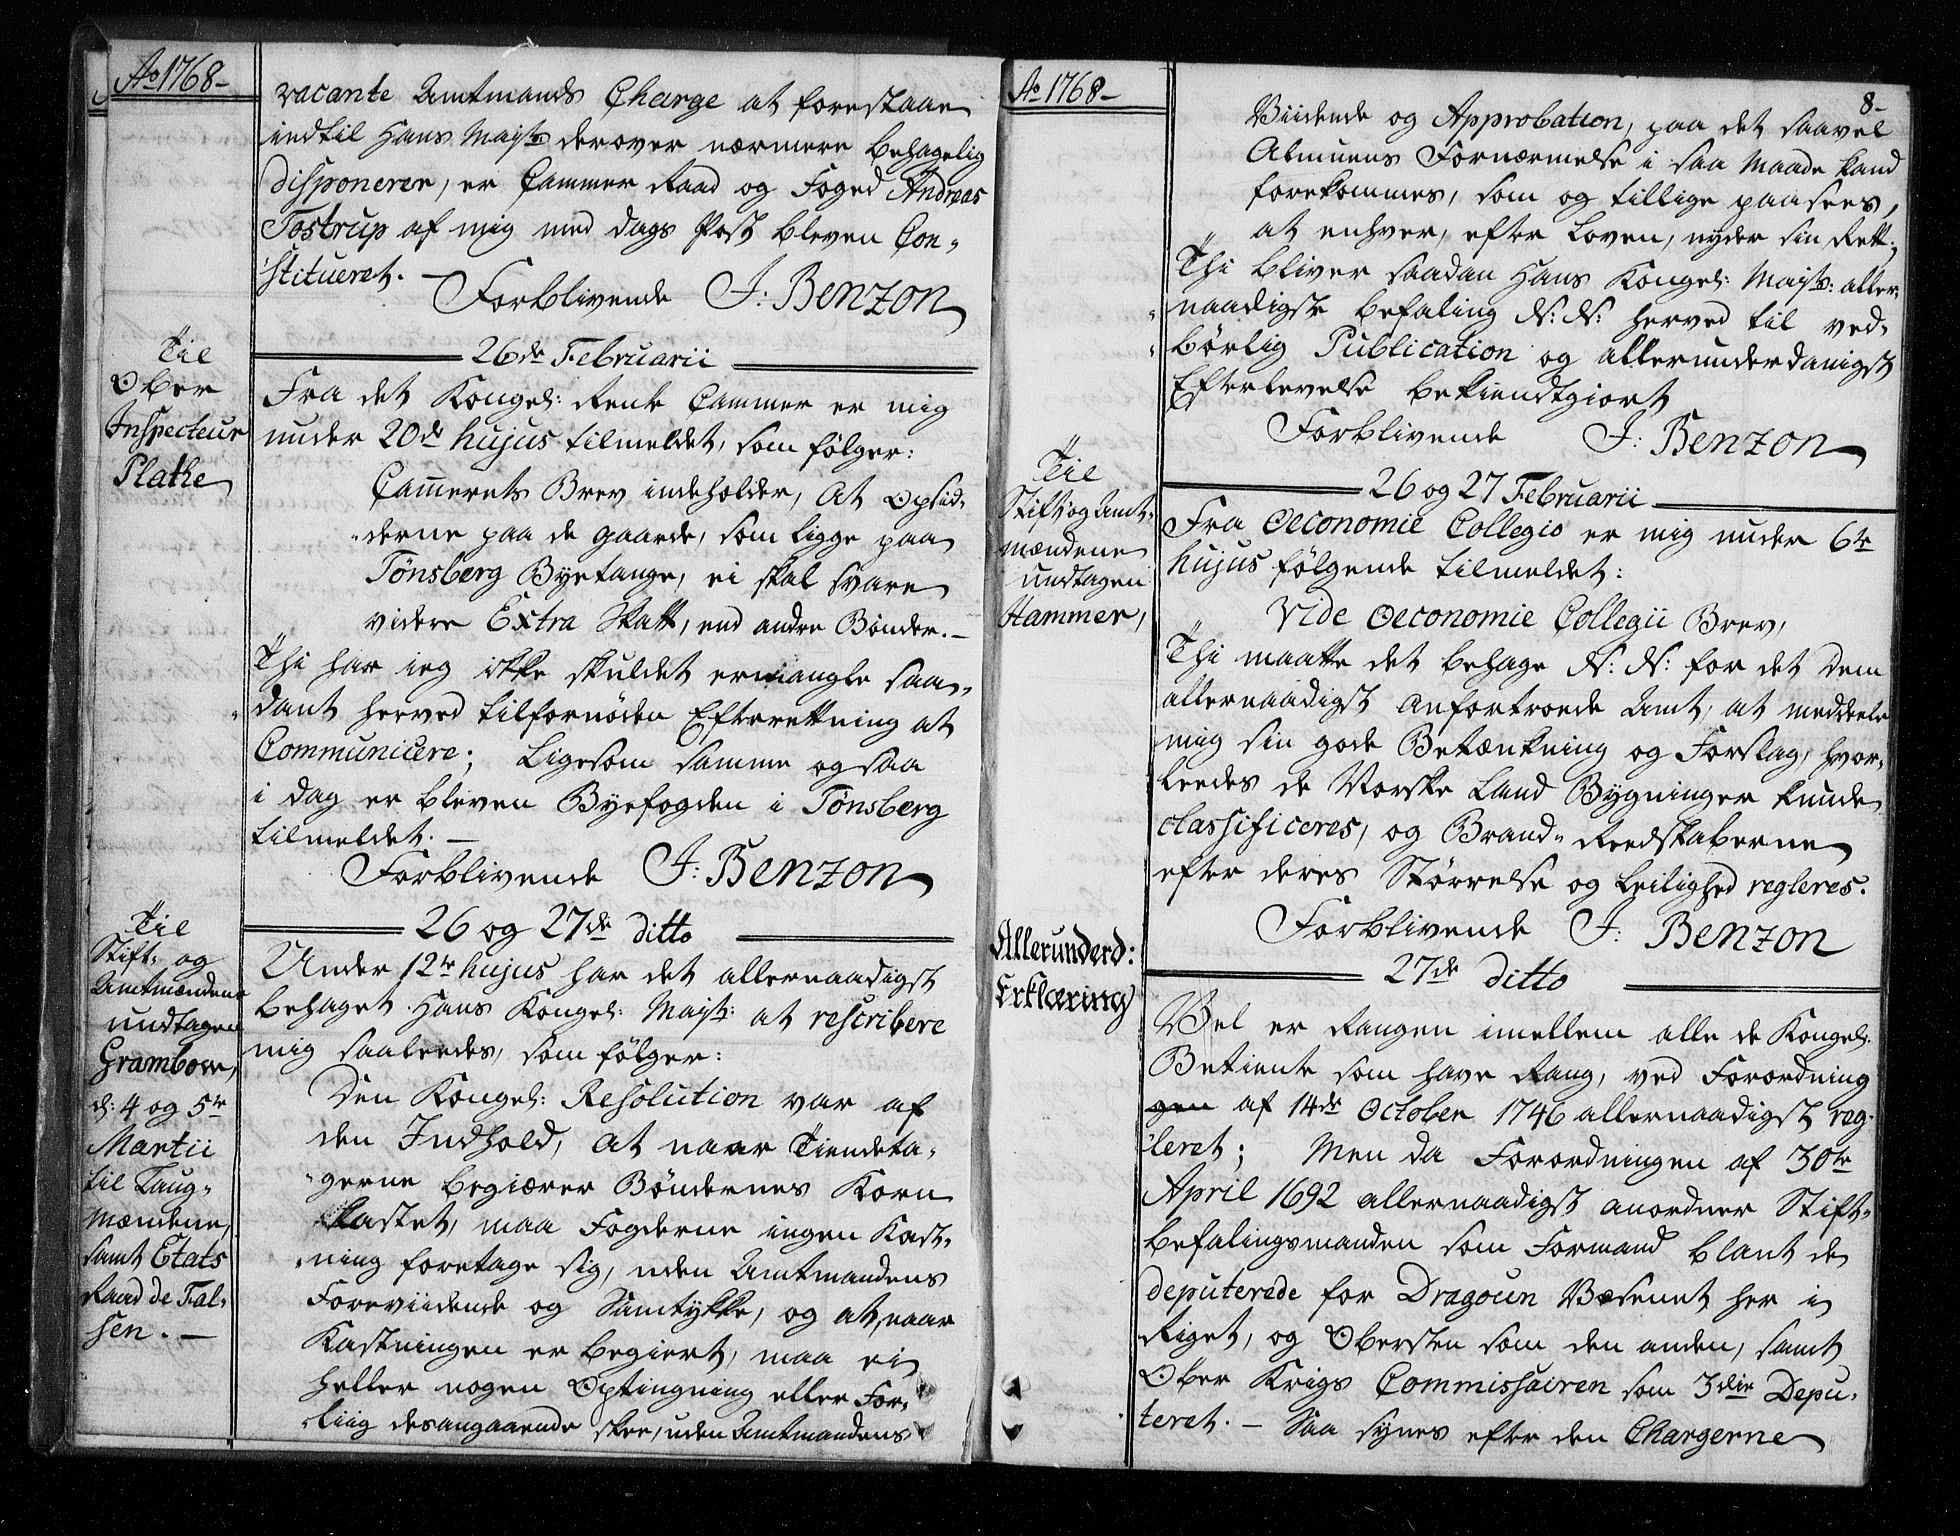 Ao 1768-
vacante Amtmands Charge at forestaae
indtil Hans Mayts. derover nærmere behagelig
disponerer, er Cammer Raad og Foged Andreas
Tostrup af mig med dags Post bleven Con-
stitueret. —
Forblivende J: Benzon
26de Februarii
Til
Ober
Inspecteur
Plathe
Fra det Kongel: Rente Cammer er mig
under 20de hujus tilmeldet, som følger:
Cammerets Brev indeholder, At Opsid-
derne paa de gaarde, som ligge paa
Tönsberg Byetange, ei skal svare
videre Extra Skatt, end andre Bönder. —
Thi har ieg ikke skuldet ermangle saa-
dant herved til fornöden Efterretning at
Communicere; Ligesom samme ogsaa
i dag er bleven Byefogden i Tönsberg
tilmeldet. —
Forblivende J: Benzon
26 og 27de ditto
Til
Stift- og
Amtmændene
undtagen
Grambow,
d: 4 og 5te
Martii
til Laug-
mændene,
samt Etats
Raad de Fal-
sen. —
Under 12te hujus har det allernaadigst
behaget Hans Kongel: Mayt: at rescribere
mig saaledes, som følger:
Den Kongel: Resolution var af
den Indhold, At naar Tiendeta-
gerne begiærer Bøndernes Korn
kastet, maa Fogderne ingen Kast-
ning foretage sig, uden Amtmandens
Foreviidende og Samtykke, og at, naar
Kastningen er begiert, maa ei
heller nogen Optingning eller For-
liig desangaaende skee, uden Amtmandens
Ao 1768-
8-
Viidende og Approbation, paa det saavel
Almuens Fornærmelse i saa Maade kand
forekommes, som og tillige paasees,
at enhver, efter Loven, nyder sin Rett;
Thi bliver saadan Hans Kongel: Mayts: aller-
naadigste befaling N: N: herved til ved-
börlig Publication og allerunderdanigst
Efterlevelse bekiendtgiort
Forblivende J: Benzon
26 og 27 Februarii
Til
Stift og Amt-
mændene
undtagen
Hammer,
Fra Oeconomie Collegio er mig under 6te
hujus følgende tilmeldet:
Vide Oeconomie Collegii Brev,
Thi maatte det behage N: N: for det Dem
allernaadigst Anfortroede Amt, at meddeele
mig sin gode Betænkning og Forslag, hvor-
leedes de Norske Land Bygninger kunde
classificeres, og Brand- Reedskaberne
efter deres Störrelse og Leilighed regleres.
Forblivende J: Benzon
27de ditto
Allerunderd:
Erklæring
Vel er Rangen imellem alle de Kongel:
Betiente som have Rang, ved Forordning
gen af 14de October 1746 allernaadigst reg-
leret; Men da Forordningen af 30te
April 1692 allernaadigst anordner Stift-
befalingsmanden som Formand blant de
deputerede for Dragoun Væsenet her i
Riget, og Obersten som den anden, samt
Ober Krigs Commissairen som 3die Depu-
teret. — Saa synes efter den Chargerne